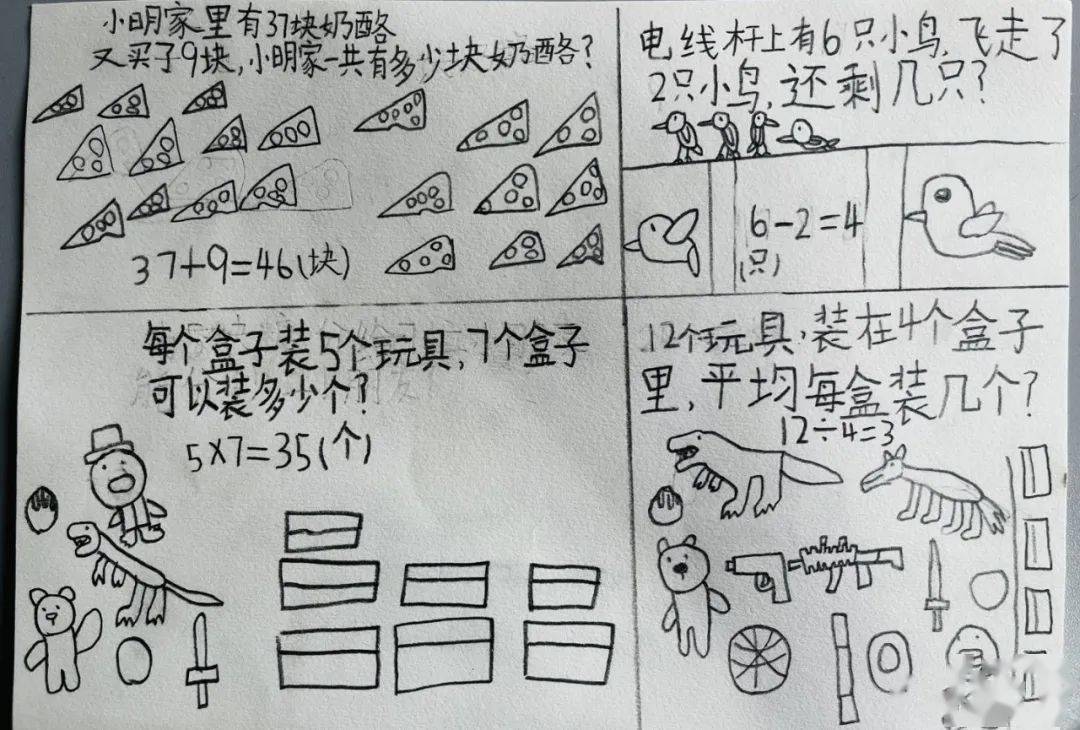 小明家里有37块奶酪
又买了9块,小明家一共有多少块奶酪?
37+9=46(块)
电线杆上有6只小鸟,飞走了
2只小鸟,还剩几只?
6-2=4
(只)
每个盒子装5个玩具,7个盒子
可以装多少个?
5×7=35(个)
12个玩具,装在4个盒子
里,平均每盒装几个?
12÷4=3